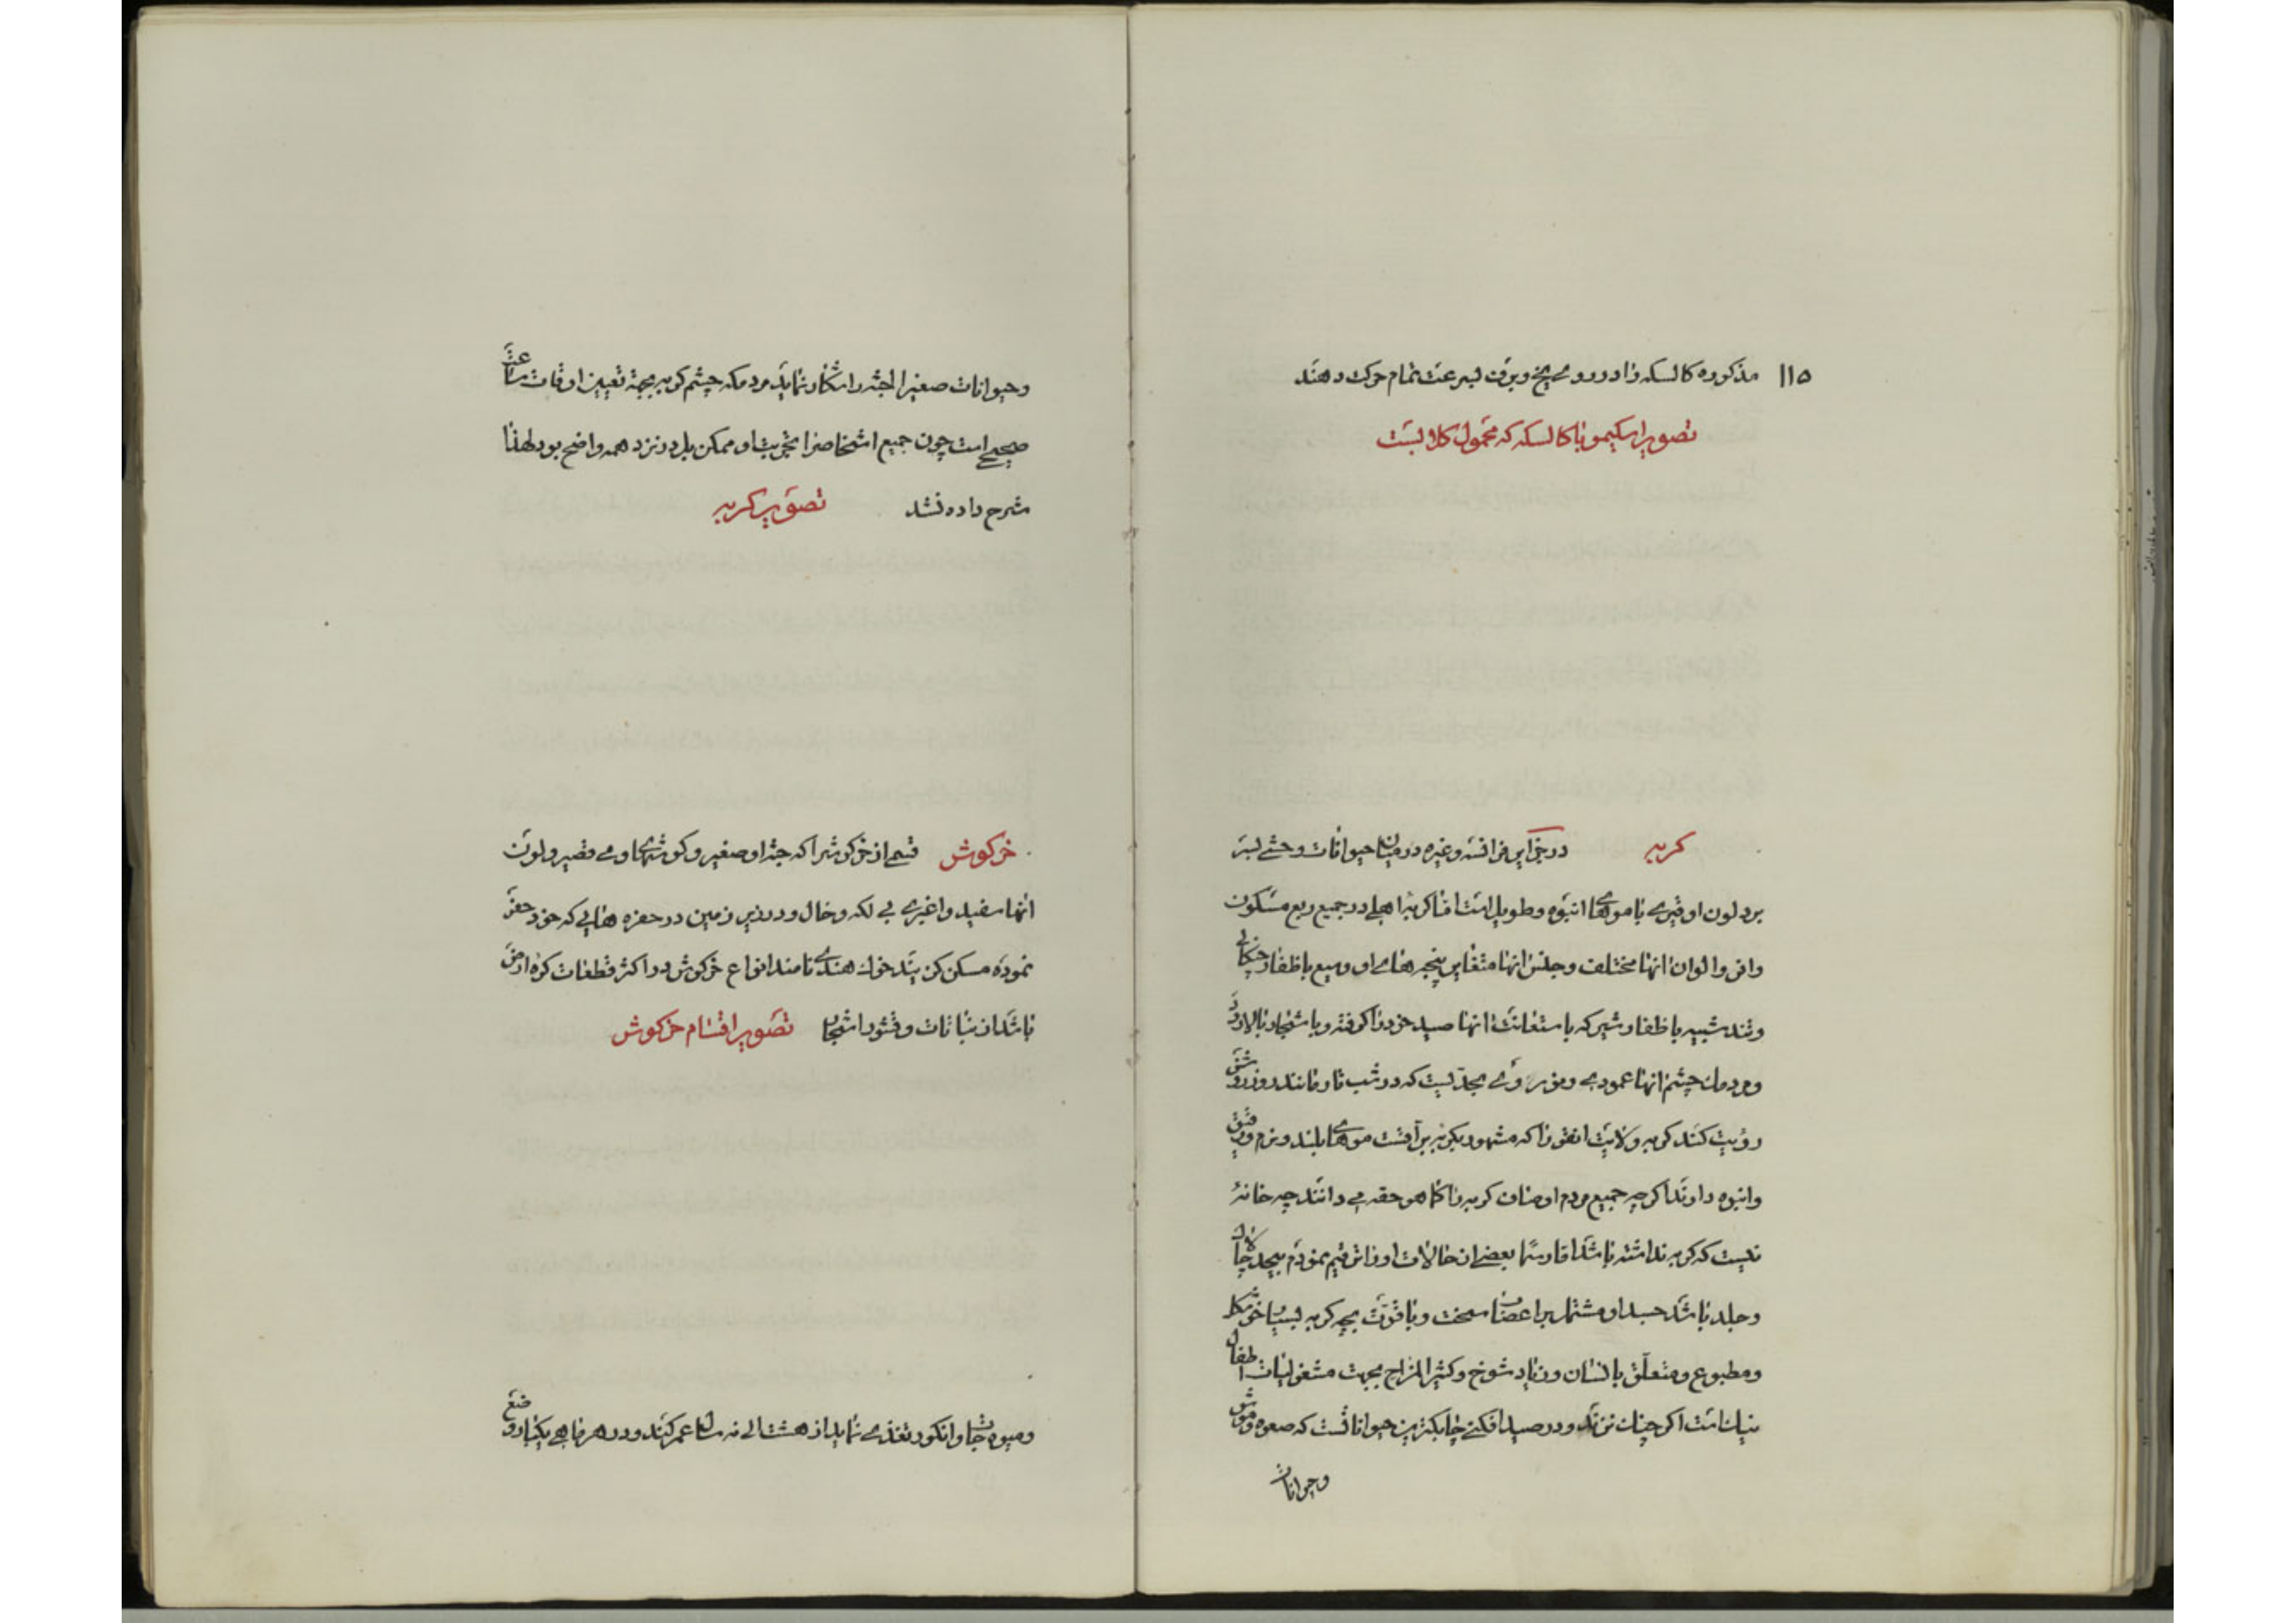 ۱۱۵ مذکوره کالسکه را در روی یخ و برف بسرعت تمام حرکت دهند
تصویر اسکیمو با کالسکه که محمول کلابست
کربه در جزایر فرانسه و غیره در میان حیوانات وحشی بسر
برد لون او قیری با موهای انبوه و طویل است اما کربه اهلی در جمیع ربع مسکون
وافر و الوان انها مختلف و جنس انها متغایر پنجه های او وسیع با ظفار چنکالی
و تند شبیه باظفار شیر که باستعانت انها صید خود را کرفته و باشجار بالا رود
و مردمان چشم انها عمودی و موثر وی بحدیست که در شب تار مانند روز روشن
رؤیت کند کربه ولایت انقره که مشهور بکربه براقست موهای بلند و نرم و رقیق
و انبوه دارند اکرچه جمیع مردم اوصاف کربه را کما هو حقه می دانند چه خانهٔ
نیست که کربه نداشته باشد اما رسما بعضی از حالات او را ترقیم نمودم بیحد چالاک
و جلد باشد جسد او مشتمل بر اعضای سخت و با قوت بچه کربه بسیار خوشکل
و مطبوع و متعلق بانسان و زیاد شوخ و کثیر المزاح بجهت مشغولیات اطفال
نیک است اکر چنک نزند و در صید افکنی چابکترین حیوانا تست که صعوه و موش
و حیوانات
و حیوانات صغیر الجثه را شکار نماید مردمکه چشم کربه بجهة تعیین اوقات ساعت
صحیح است چون جمیع اشخاص را تجربت او ممکن بل در نزد همه واضح بود لهذا
شرح داده نشد تصویر کربه
خرکوش قسمی از خرکوش را که جثه او صغیر و کوشهای وی قصیر و لون
انها سفید و اغبری بی لکه و خال و در زیر زمین در حفره هایی که خود حفر
نموده مسکن کزینند خوک هندی نامند انواع خرکوش در اکثر قطعات کره ارض
باشد از نباتات و قشور اشجار تصویر اقسام خرکوش
و میوه جات و انکور تغذی نماید از هشت الی نه سال عمر کند و در هر ماهی یکبار وضع